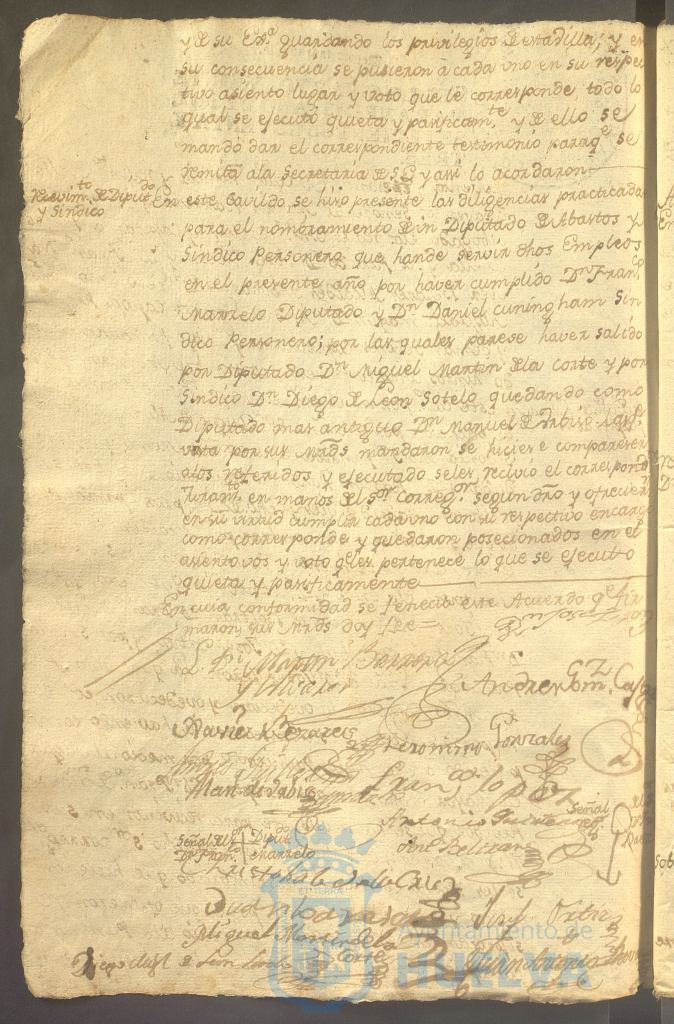 y de su Exa. guardando los privilegios de estadilla; y en
su consecuencia se pusieron à cada vno en su respec
tivo asiento lugar y voto que le corresponde, todo lo
qual se executó quieta y pasificamte. y de ello se
mando dar el correspondiente testimonio para qe. se
remita ala Secretaria de S.E. y asi lo acordaron
Recevimto. de Diputado
y Sindico
En este Cavildo se hiso presente las diligencias practicadas
para el nombramiento de un Diputado de Abastos y
Sindico Personero que hande servir dhos Empleos
en el presente año por haver cumplido Dn. Franco.
Marzelo Diputado y Dn. Daniel cuningham Sin
dico Personero; por las quales parese haver salido
por Diputado Dn. Miguel Martin de la Corte y por
Sindico Dn. Diego de Leon Sotelo quedando como
Diputado mas antiguo Dn. Manuel de
vista por sus Mrds mandaron se hiciese compareser
alos referidos y executado seles recivio el correspondte.
Juramto. en manos del Sor. Corregr. segun dro y ofrecieron
en su virtud cumplir cada uno con su respectivo encargo
como corresponde y quedaron posecionados en el
asiento vos y voto qe. les pertenece lo que se executó
quieta y pasificamente
En cuia conformidad se fenecio este Acuerdo qe. fir
maron sus Mrds doy fee=
Martin Barrera
Andres
Xavier
Geronimo Gonzalez
Franco. Lopez
Antonio
Señal
Señal del Diputdo.
Dn. Franco. Marzelo
José Beltran
Christobal de la Cruz
José Ortiz
Miguel Martin de la
Corte
Diego de Leon Sotelo
Ayuntamiento de
HUELVA